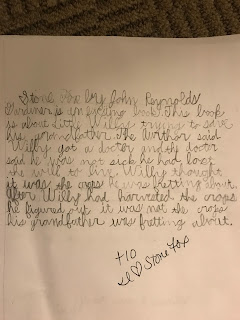 Stone Fox by John Reynolds
Gardiner is an exciting book. This book
is about Little Willy trying to save
his grandfather. The author said
Willy got a doctor and the doctor
said he was not sick he had lost
the will to live. Willy thought
it was the crops he was fretting about.
After Willy had harvested the crops
he figured out it was not the crops
his grandfather was fretting about.
+10
I ♡ Stone Fox